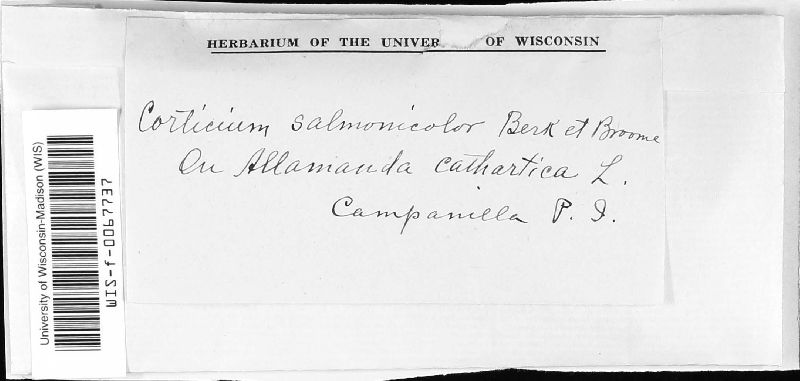 HERBARIUM OF THE UNIVER OF WISCONSIN
Corticium salmonicolor Berk et Broome
On Allamanda cathartica L.
Campanilla P. I.
University of Wisconsin-Madison (WIS)
WIS-f-0067737